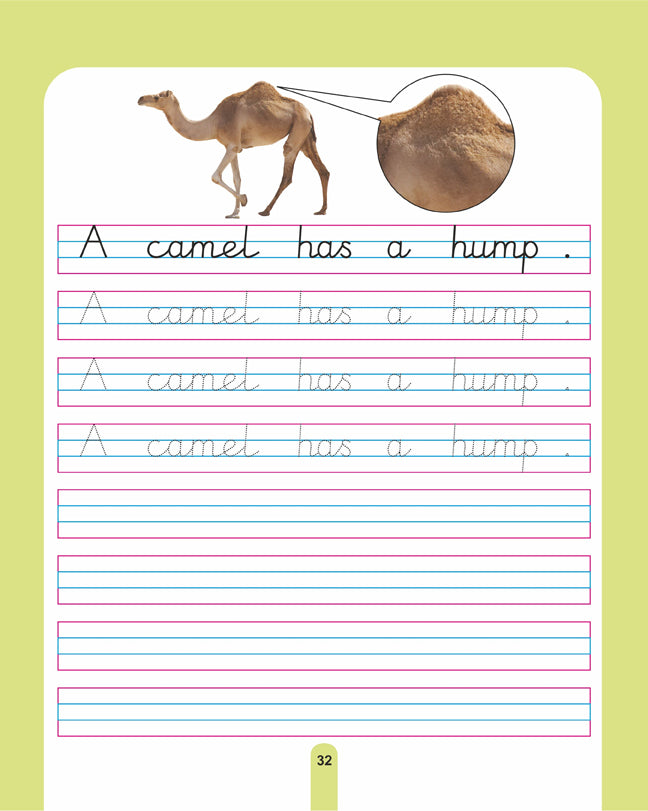 A camel has a hump .
A camel has a hump .
A camel has a hump .
A camel has a hump .
32